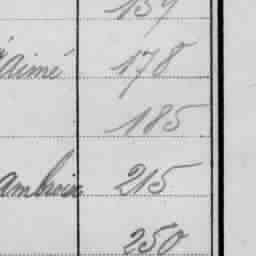 159
Aimé 178
185
Ambroise 215
250